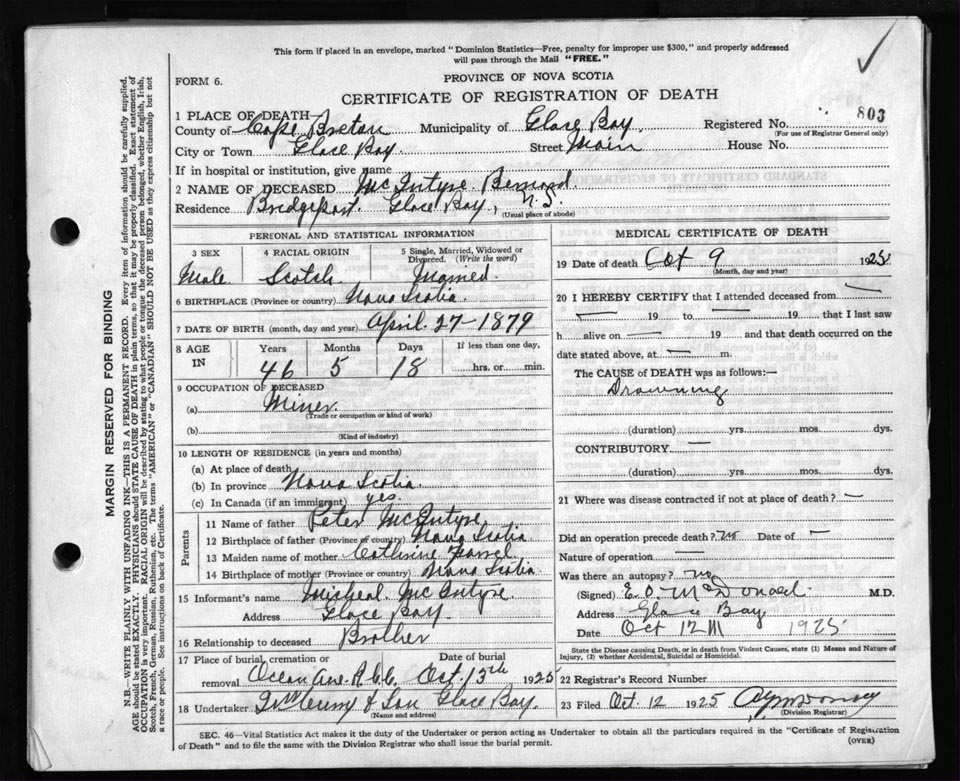 This form if placed in an envelope, marked "Dominion Statistics—Free, penalty for improper use $300," and properly addressed
will pass through the Mail "FREE."
FORM 6.
PROVINCE OF NOVA SCOTIA
CERTIFICATE OF REGISTRATION OF DEATH
803
1 PLACE OF DEATH
County of Cape Breton Municipality of Glace Bay Registered No.
(For use of Registrar General only)
City or Town Glace Bay Street Main House No.
If in hospital or institution, give name
2 NAME OF DECEASED McIntyre Bernard
Residence Bridgeport. Glace Bay, N.S.
(Usual place of abode)
PERSONAL AND STATISTICAL INFORMATION
3 SEX 4 RACIAL ORIGIN 5 Single, Married, Widowed or Divorced. (Write the word)
Male Scotch Married
6 BIRTHPLACE (Province or country) Nova Scotia
7 DATE OF BIRTH (month, day and year) April-27-1879
8 AGE IN Years Months Days If less than one day,
46 5 18 hrs. or min.
9 OCCUPATION OF DECEASED
(a) Miner
(Trade or occupation or kind of work)
(b)
(Kind of industry)
10 LENGTH OF RESIDENCE (in years and months)
(a) At place of death
(b) In province Nova Scotia
(c) In Canada (if an immigrant) yes.
Parents
11 Name of father Peter McIntyre
12 Birthplace of father (Province or country) Nova Scotia
13 Maiden name of mother Catherine Farrel
14 Birthplace of mother (Province or country) Nova Scotia
15 Informant's name Micheal McIntyre
Address Glace Bay
16 Relationship to deceased Brother
17 Place of burial, cremation or removal Date of burial
Oct. 13th 1925
18 Undertaker & Son Glace Bay.
(Name and address)
MEDICAL CERTIFICATE OF DEATH
19 Date of death Oct 9 1925
(Month, day and year)
20 I HEREBY CERTIFY that I attended deceased from —
— 19 to — 19 that I last saw
h alive on 19 and that death occurred on the
date stated above, at — m.
The CAUSE of DEATH was as follows:—
Drowning
(duration) yrs. mos. dys.
CONTRIBUTORY —
(duration) yrs. mos. dys.
21 Where was disease contracted if not at place of death? —
Did an operation precede death? no Date of —
Nature of operation —
Was there an autopsy? no
(Signed) E.O. McDonald M.D.
Address Glace Bay
Date Oct 12 1925
State the Disease causing Death, or in death from Violent Causes, state (1) Means and Nature of
Injury, (2) whether Accidental, Suicidal or Homicidal.
22 Registrar's Record Number
23 Filed Oct. 12 1925
(Division Registrar)
SEC. 46—Vital Statistics Act makes it the duty of the Undertaker or person acting as Undertaker to obtain all the particulars required in the "Certificate of Registration
of Death" and to file the same with the Division Registrar who shall issue the burial permit.
(OVER)
MARGIN RESERVED FOR BINDING
N.B.—WRITE PLAINLY WITH UNFADING INK—THIS IS A PERMANENT RECORD. Every item of information should be carefully supplied.
AGE should be stated EXACTLY. PHYSICIANS should STATE CAUSE OF DEATH in plain terms, so that it may be properly classified. Exact statement of
OCCUPATION is very important. RACIAL ORIGIN will be described by stating to what people or tongue the deceased person belonged, whether English, Irish,
Scotch, French, German, Russian, Ruthenian, etc. The terms "AMERICAN" or "CANADIAN" SHOULD NOT BE USED as they express citizenship but not
a race or people. See instructions on back of Certificate.